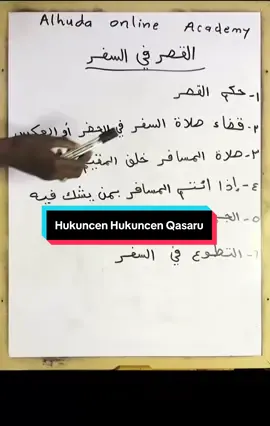 Alhuda online Academy
القصر في السفر
١- حكم القصر
٢- قضاء صلاة السفر في الحضر أو العكس
٣- صلاة المسافر خلف المقيم
٤- إذا ائتم المسافر بمن يشك فيه
Hukuncen Hukuncen Qasaru
٥- الجـ
٦- التطوع في السفر